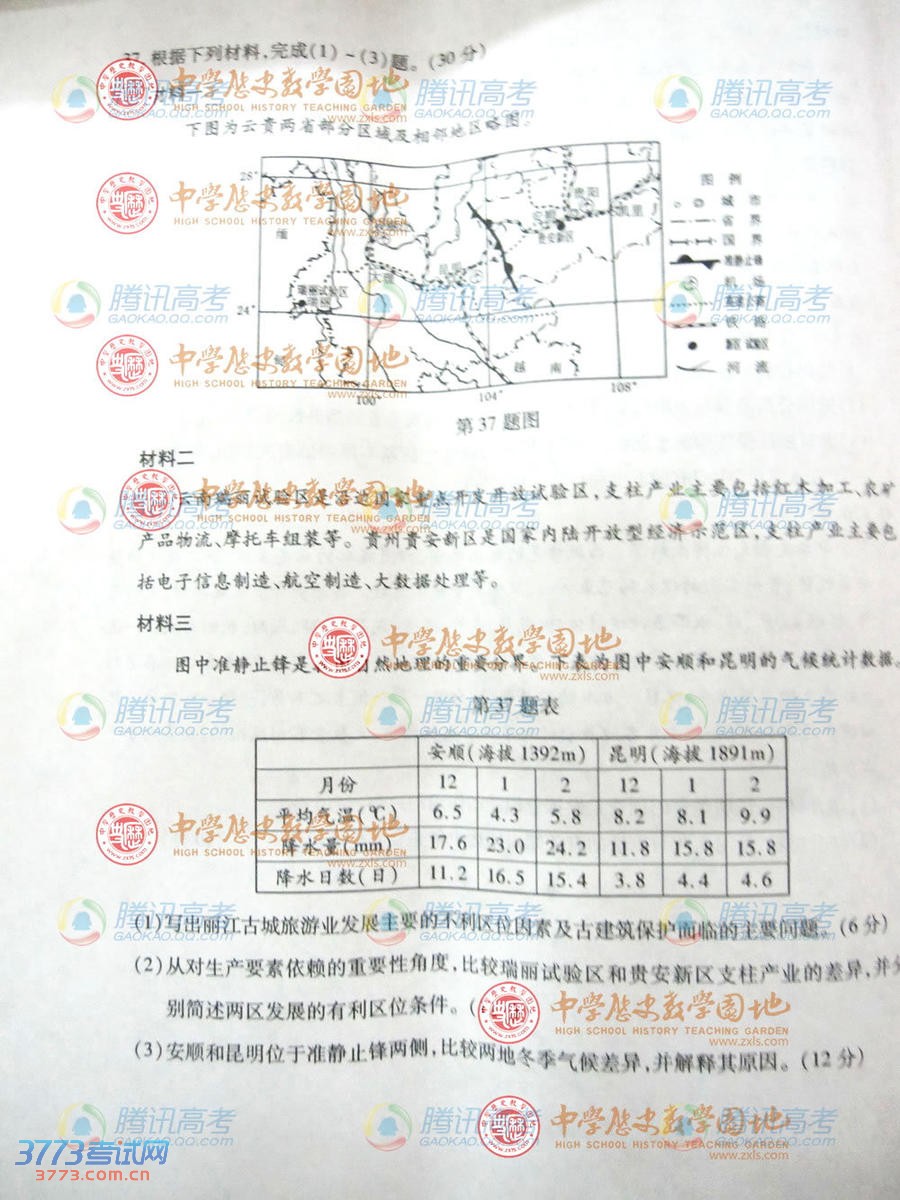 37.根据下列材料,完成(1)~(3)题。(30分)
材料一
下图为云贵两省部分区域及相邻地区略图。
28°
24°
100°
104°
108°
缅
大理
昆明
瑞丽试验区
瑞丽
贵阳
安顺
贵安新区
凯里
越 南
图 例
城 市
省 界
国 界
准静止锋
机 场
高速公路
铁 路
新区 试验区
河 流
第37题图
材料二
云南瑞丽试验区是沿边国家重点开发开放试验区,支柱产业主要包括红木加工、农矿
产品物流、摩托车组装等。贵州贵安新区是国家内陆开放型经济示范区,支柱产业主要包
括电子信息制造、航空制造、大数据处理等。
材料三
图中准静止锋是 自然地理的重要分界 表为图中安顺和昆明的气候统计数据。
第37题表
安顺(海拔1392m) 昆明(海拔1891m)
月份 12 1 2 12 1 2
平均气温(℃) 6.5 4.3 5.8 8.2 8.1 9.9
降水量(mm) 17.6 23.0 24.2 11.8 15.8 15.8
降水日数(日) 11.2 16.5 15.4 3.8 4.4 4.6
(1)写出丽江古城旅游业发展主要的不利区位因素及古建筑保护面临的主要问题。(6分)
(2)从对生产要素依赖的重要性角度,比较瑞丽试验区和贵安新区支柱产业的差异,并分
别简述两区发展的有利区位条件。(
(3)安顺和昆明位于准静止锋两侧,比较两地冬季气候差异,并解释其原因。(12分)
中学历史教学园地
HIGH SCHOOL HISTORY TEACHING GARDEN
www.zxls.com
腾讯高考
GAOKAO.QQ.COM
3773考试网
3773.com.cn